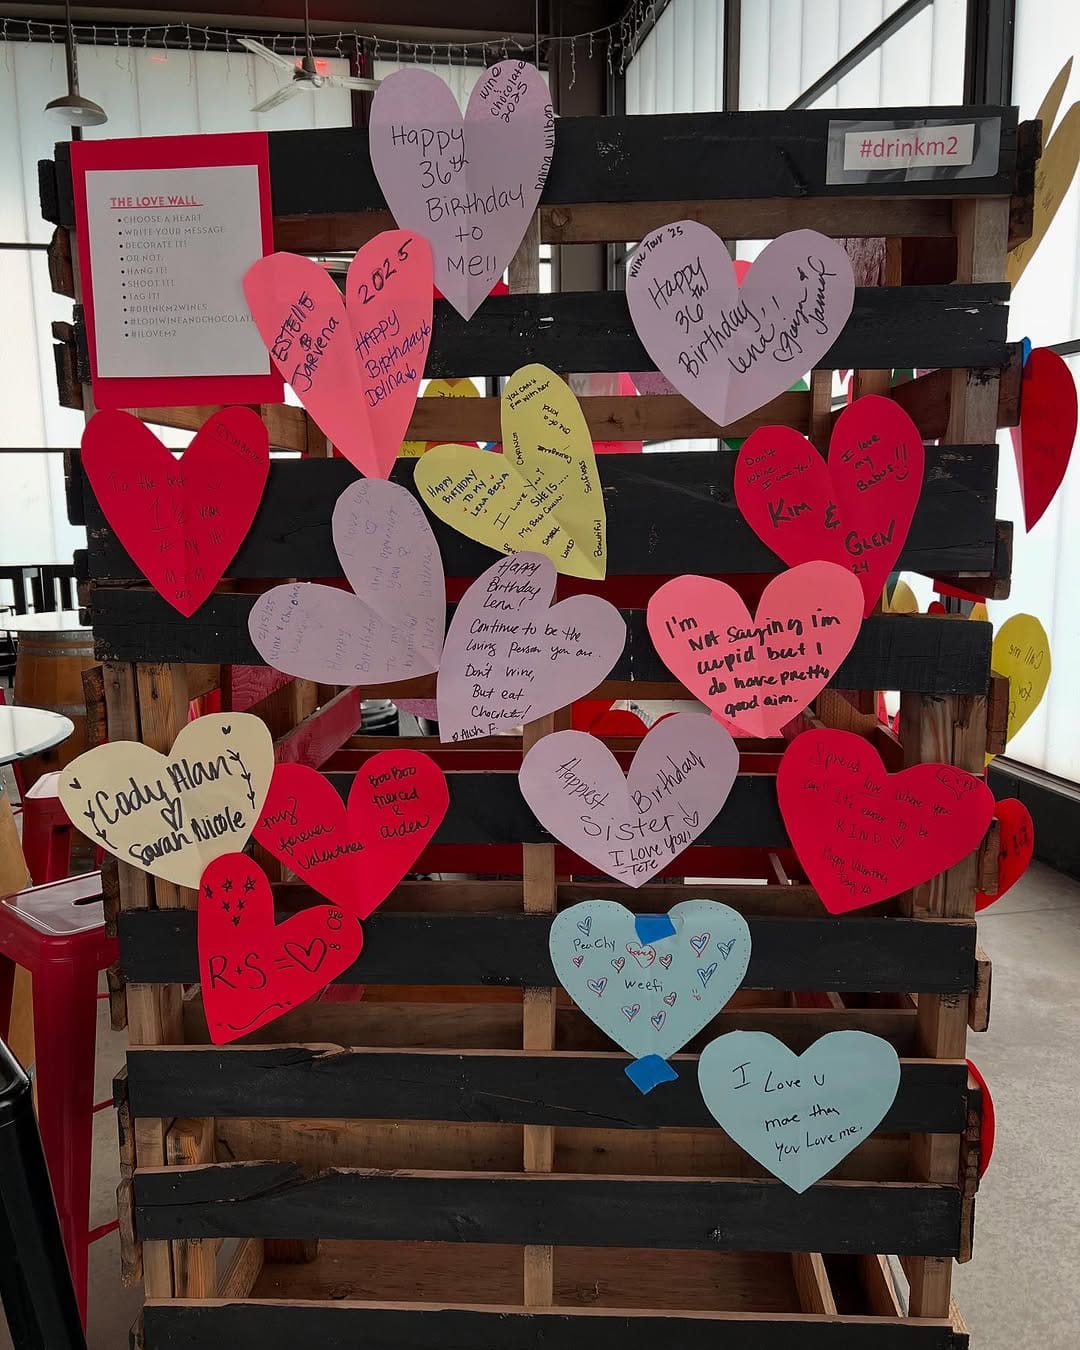 THE LOVE WALL
• CHOOSE A HEART
• WRITE YOUR MESSAGE
• DECORATE IT!
• OR NOT.
• HANG IT!
• SHOOT IT!
• TAG IT!
• #DRINKM2WINES
• #LODIWINEANDCHOCOLATE
• #ILOVEM2
Happy
36th
Birthday
to
Me!!
wine
&
chocolate
2025
#drinkm2
ESTELLE
B
Jarvena
2025
Happy
Birthday
Dalina
Wine Tour '25
Happy
36th
Birthday,
Lena!!
To the best
1 1/2 years
of my life!
M + M
HAPPY
BIRTHDAY
TO MY
LENA BENA
I Love You!
SHE IS....
My Best Cousin
CARING
SMART
LOVED
Beautiful
Don't
Whine
I love You!
Kim &
Glen
24
I love
my
Babus!!
I love you
and appreciate
you
2/15/25
Wine & Chocolate
Happy
Birthday
To my
Happy
Birthday
Lena!
Continue to be the
loving person you are..
Don't wine,
But eat
Chocolate!
Alisha F.
I'm
NOT Saying i'm
cupid but I
do have pretty
good aim.
Cody Alan
Sarah Nicole
my
forever
Valentines
Boo Boo
merced
&
aiden
Happiest Birthday
Sister
I Love You!!
-TeTe
Spread love where you
can! It's easier to be
KIND
Happy Valentines
Day xo
R+S=
Peachy
loves
weefi
I Love u
more than
you Love me.